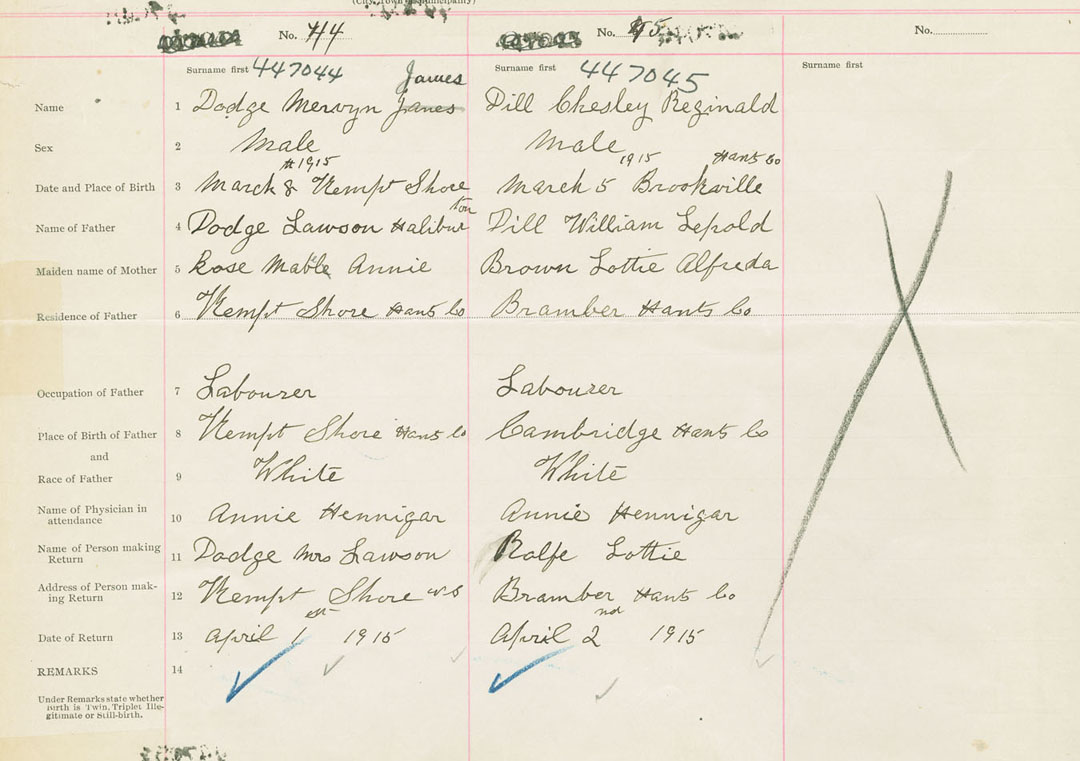 (City, Town or Municipality)
No. 44
No. 45
No.
Surname first 447044 James
Surname first 447045
Surname first
Name 1 Dodge Mervyn James Dill Chesley Reginald
Sex 2 Male Male
1915 1915 Hants Co
Date and Place of Birth 3 March 8 Kempt Shore March 5 Brookville
ton
Name of Father 4 Dodge Lawson Halibur Dill William Lepold
Maiden name of Mother 5 Rose Mable Annie Brown Lottie Alfreda
Residence of Father 6 Kempt Shore Hants Co Bramber Hants Co
Occupation of Father 7 Labourer Labourer
Place of Birth of Father 8 Kempt Shore Hants Co Cambridge Hants Co
and
Race of Father 9 White White
Name of Physician in
attendance 10 Annie Hennigar Annie Hennigar
Name of Person making
Return 11 Dodge Mrs Lawson Rolfe Lottie
Address of Person mak-
ing Return 12 Kempt Shore NS Bramber Hants Co
Date of Return 13 April 1st 1915 April 2nd 1915
REMARKS 14
Under Remarks state whether
birth is Twin, Triplet Ille-
gitimate or Still-birth.